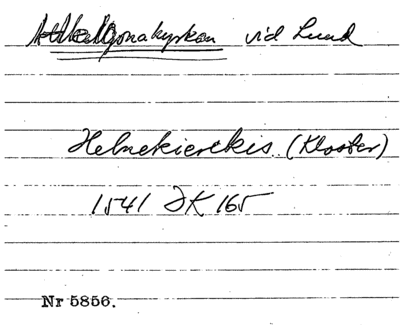 Allhelgonakyrkan vid Lund
Helnekierekis (Kloster)
1541 DK 165
Nr 5856.